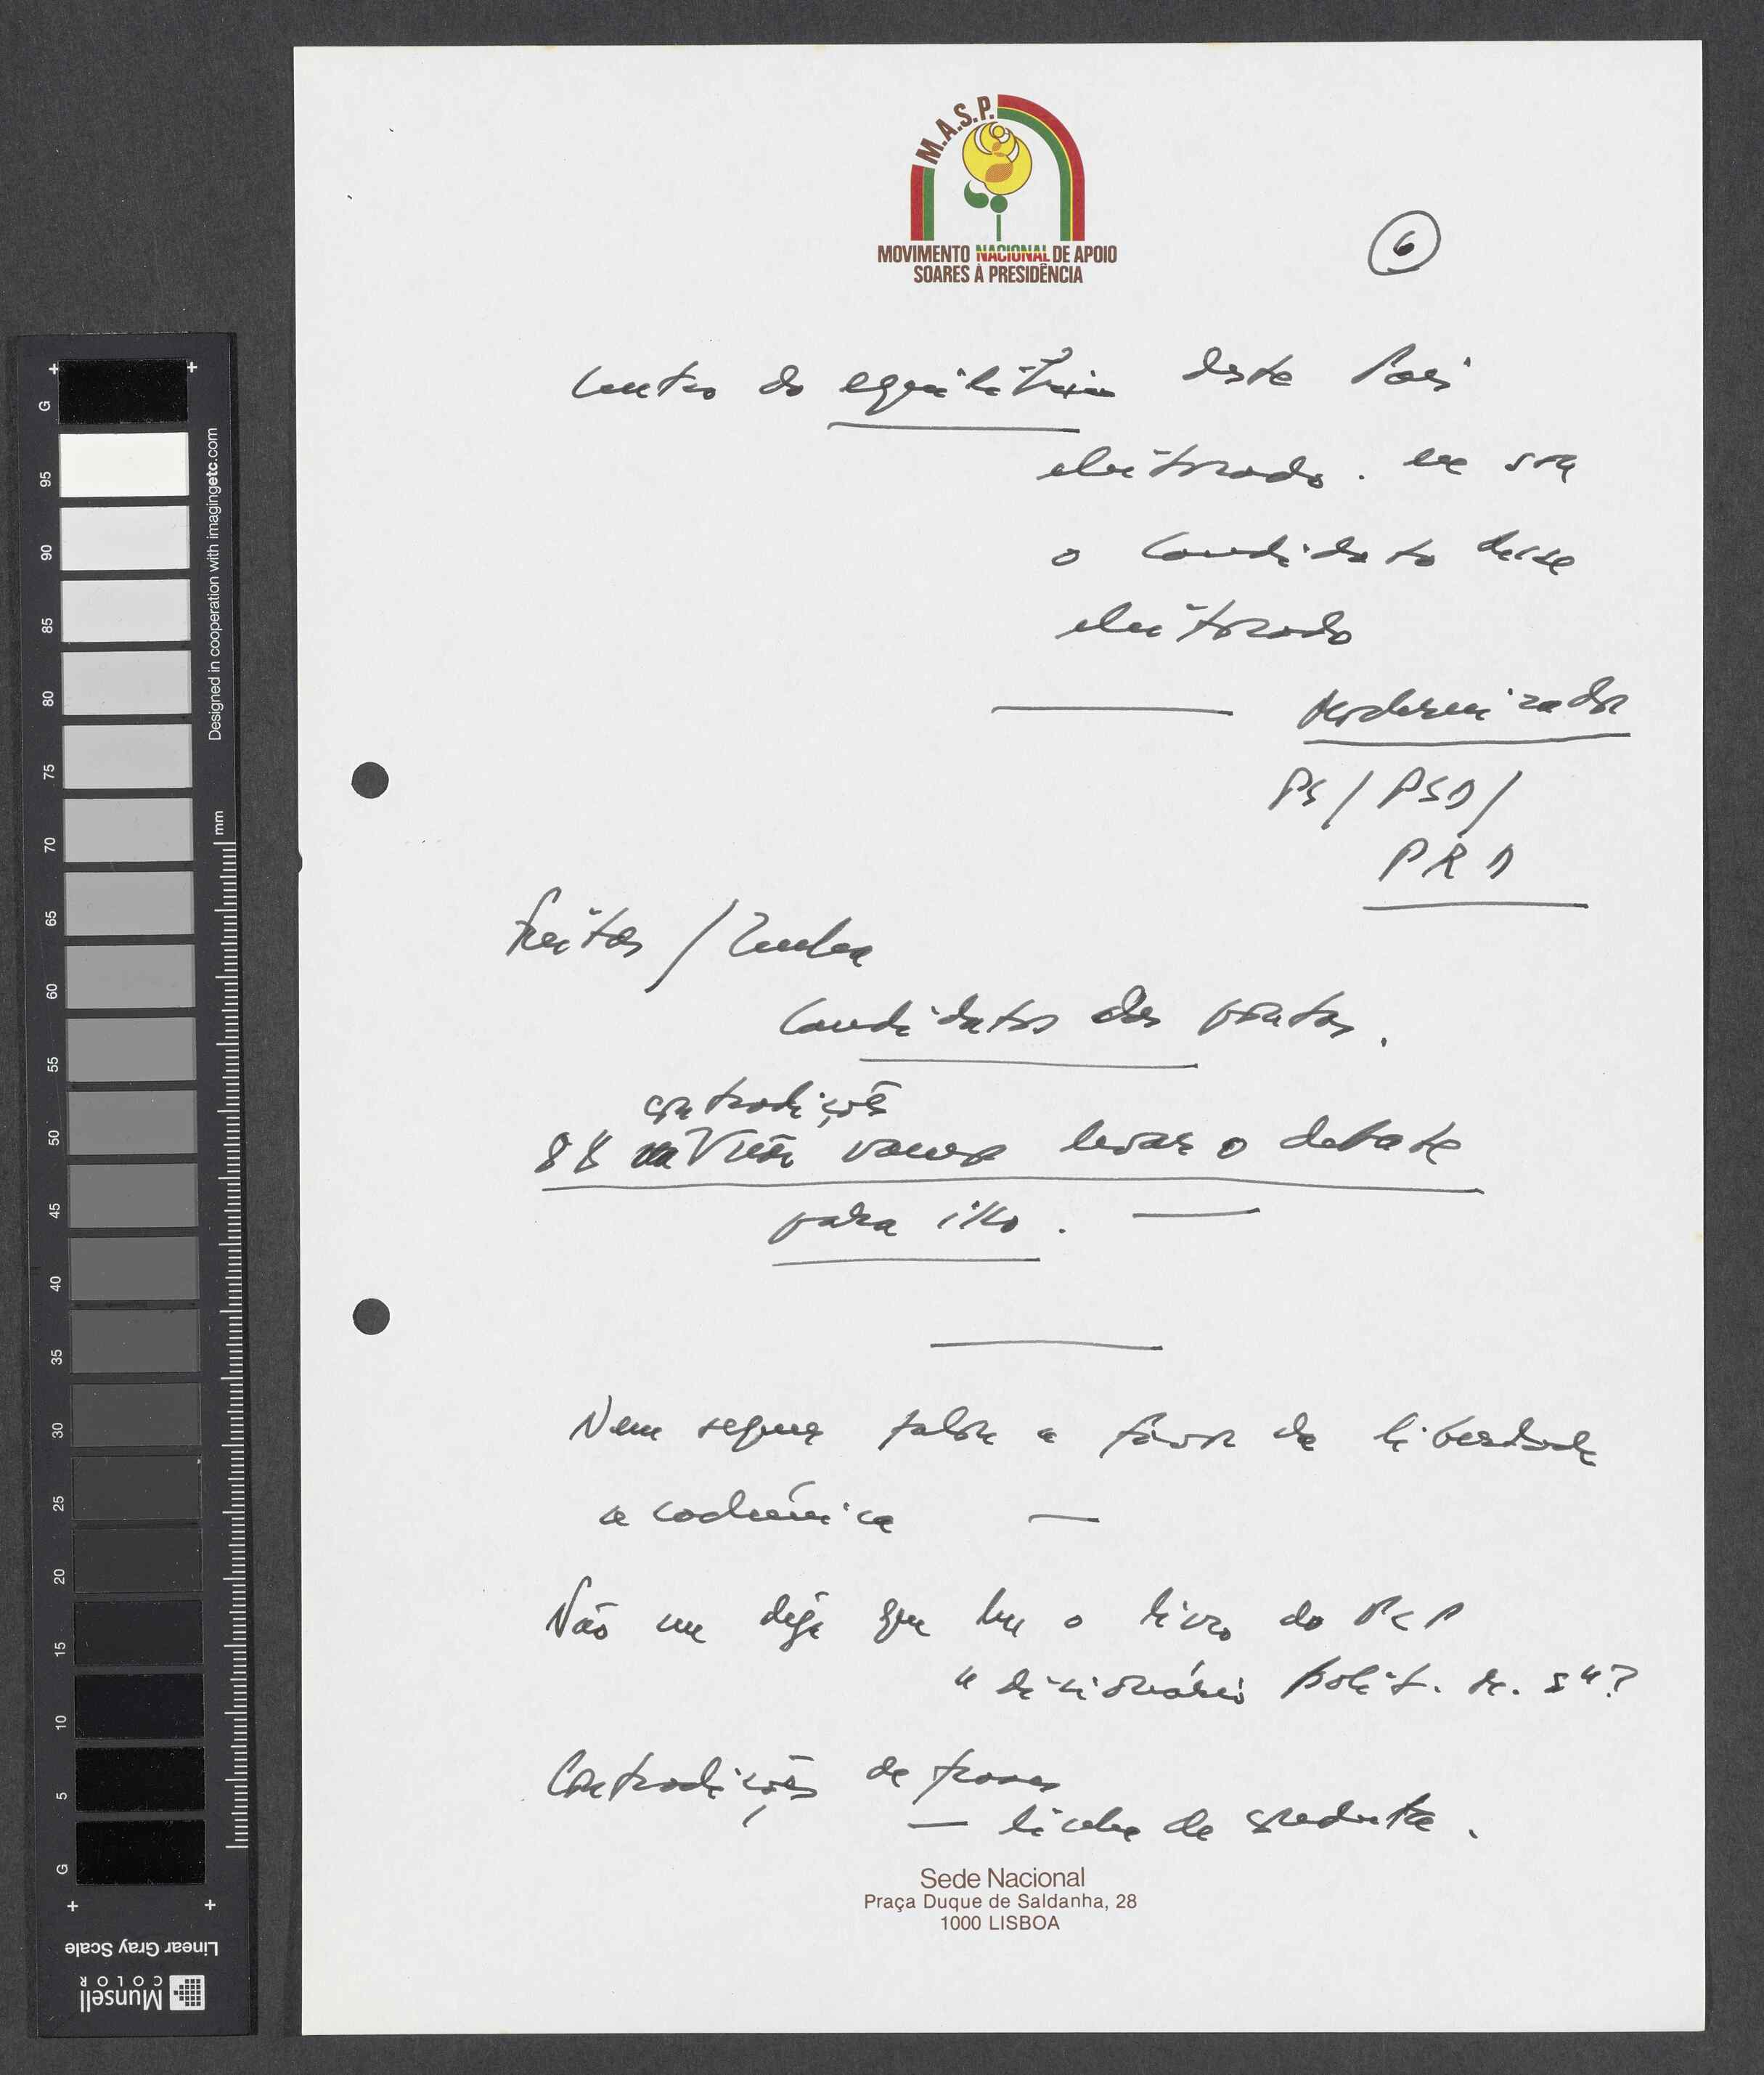 M.A.S.P.
MOVIMENTO NACIONAL DE APOIO
SOARES À PRESIDÊNCIA
6
Centro do equilíbrio deste País
eleitorado. eu sou
o Candidato desse
eleitorado
Modernizador
PS / PSD /
PRD
Freitas / Zenha
Candidatos dos
contradições
vamos levar o debate
para isso.
Nem sequer falou a favor da liberdade
académica —
Não me diga que leu o livro do PCP
"dicionário polít. de. S"?
Contradições de
— de
Sede Nacional
Praça Duque de Saldanha, 28
1000 LISBOA
G
95
90
85
80
75
70
65
60
55
50
45
40
35
30
25
20
15
10
5
G
mm
Designed in cooperation with imagingetc.com
Linear Gray Scale
Munsell
COLOR